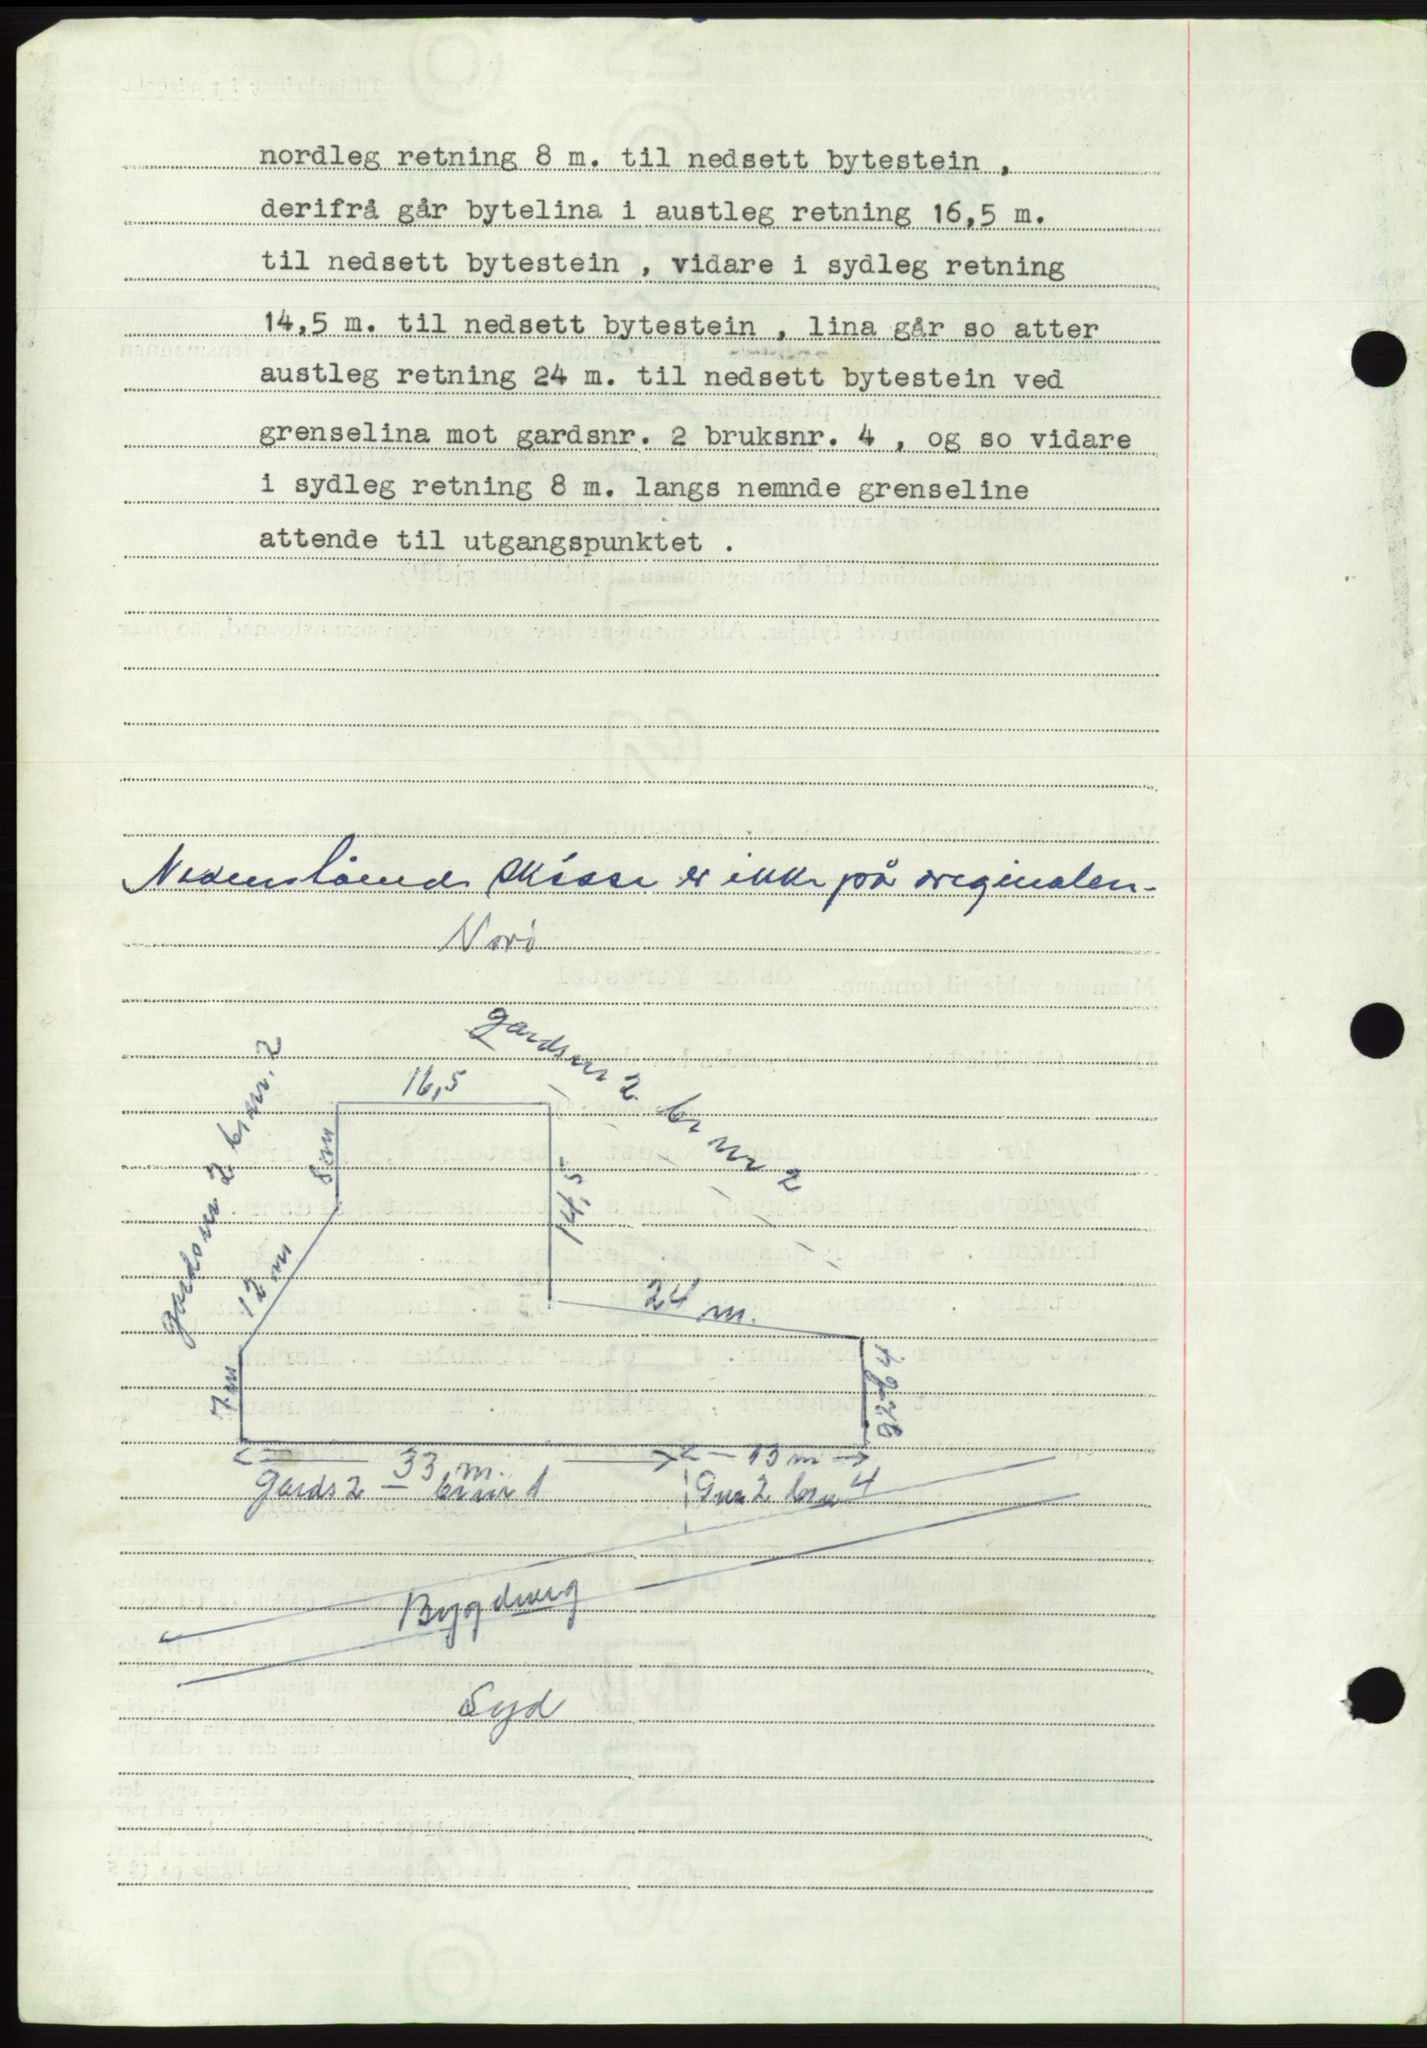 nordleg retning 8 m. til nedsett bytestein ,
derifrå går bytelina i austleg retning 16,5 m.
til nedsett bytestein , vidare i sydleg retning
14,5 m. til nedsett bytestein , lina går so atter
austleg retning 24 m. til nedsett bytestein ved
grenselina mot gardsnr. 2 bruksnr. 4 , og so vidare
i sydleg retning 8 m. langs nemnde grenseline
attende til utgangspunktet .
Nedenstående skisse er ikke på originalen.
Nord
gardsnr 2 br nr 2
gardsnr 2 br nr. 2
16,5
8m
14,5
12 m
24 m.
7 m
g 2 b 4
33 m.
13 m
gards 2 – br nr 1
Gnr 2 bnr 4
Bygdveg
Syd